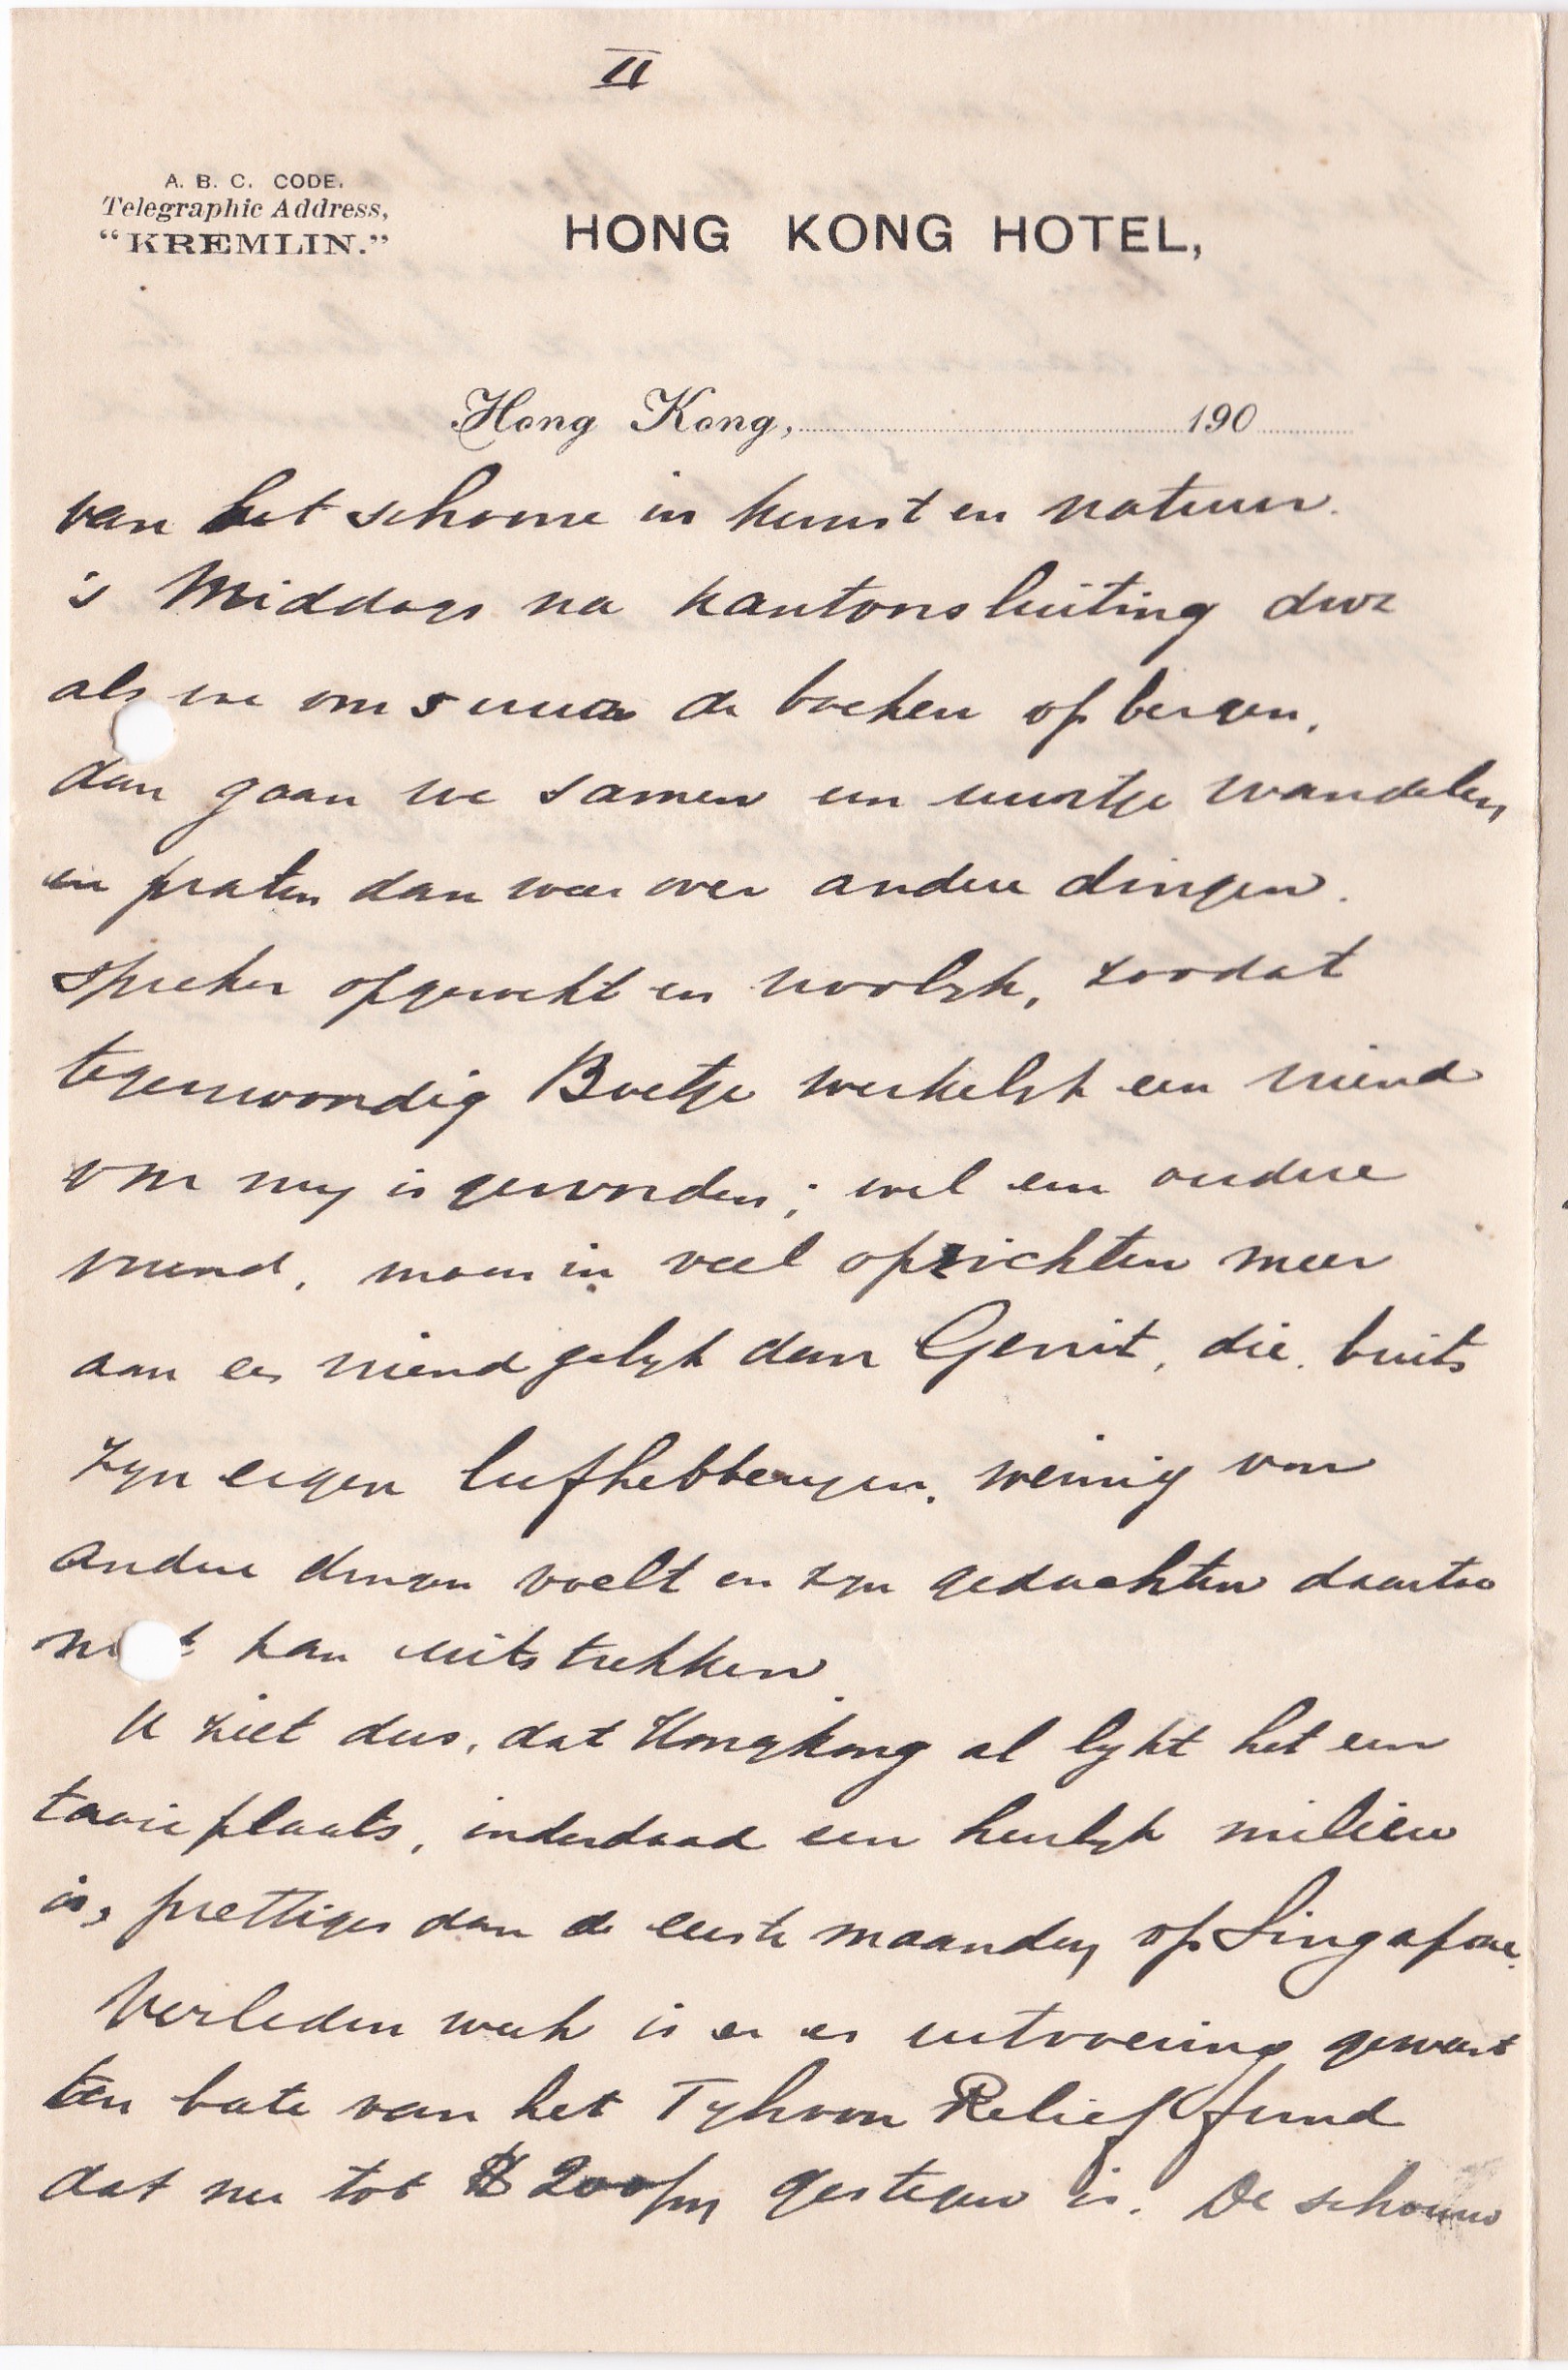 II
A. B. C. CODE.
Telegraphic Address,
"KREMLIN."
HONG KONG HOTEL,
Hong Kong, 190
van het schoone in kunst en natuur.
's Middags na kantoorsluiting dwz
als we om 5 uur de boeken opbergen,
dan gaan we samen een uurtje wandelen
en praten dan weer over andere dingen.
spreken opgewekt en vroolyk, zoodat
tegenwoordig Boetje werkelyk een vriend
voor my is geworden; wel een oudere
vriend, maar in veel opzichten meer
aan een vriend gelyk dan Gerrit, die, buiten
zyn eigen liefhebberyen, weinig van
andere dingen voelt en zyn gedachten daartoe
niet kan uitstrekken.
U ziet dus, dat Hongkong al lykt het een
taaie plaats, inderdaad een heerlyk milieu
is, prettiger dan de eerste maanden op Singapore.
Verleden week is er een uitvoering geweest
ten bate van het Tyhoon Relief fund
dat nu tot $ 200/m gestegen is. De schouw